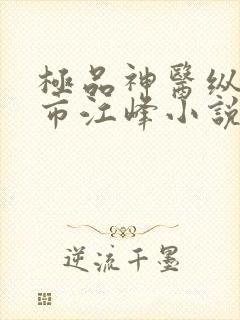 極品神醫纵
市江峰小說
逆流千墨